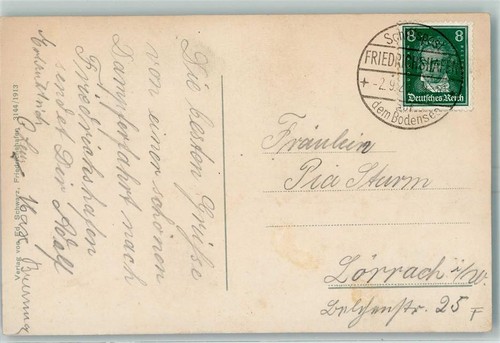 Die besten Grüße
von einer schönen
Dampferfahrt nach
Friedrichshafen
sendet Dir Adolf
Max
Fräulein
Pia Sturm
Lörrach i/W.
Belchenstr. 25
8 8
Deutsches Reich
FRIEDRICHSHAFEN
-2.9.2
dem Bodensee